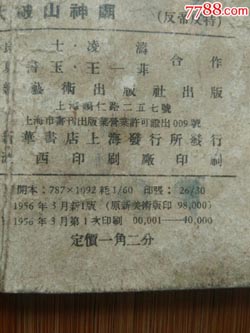 7788.com
山神廟
(反帝反特)
士·凌 濤
玉·王一非
合作
藝術出版社出版
上海銅仁路二五七號
上海市書刊出版業營業許可證出009號
華書店上海發行所發行
西印刷廠印刷
開本:787×1092 耗1/60 印張:26/30
1956年3月新1版(原新美術版印98,000)
1956年3月第1次印刷 00,001—40,000
定價一角二分